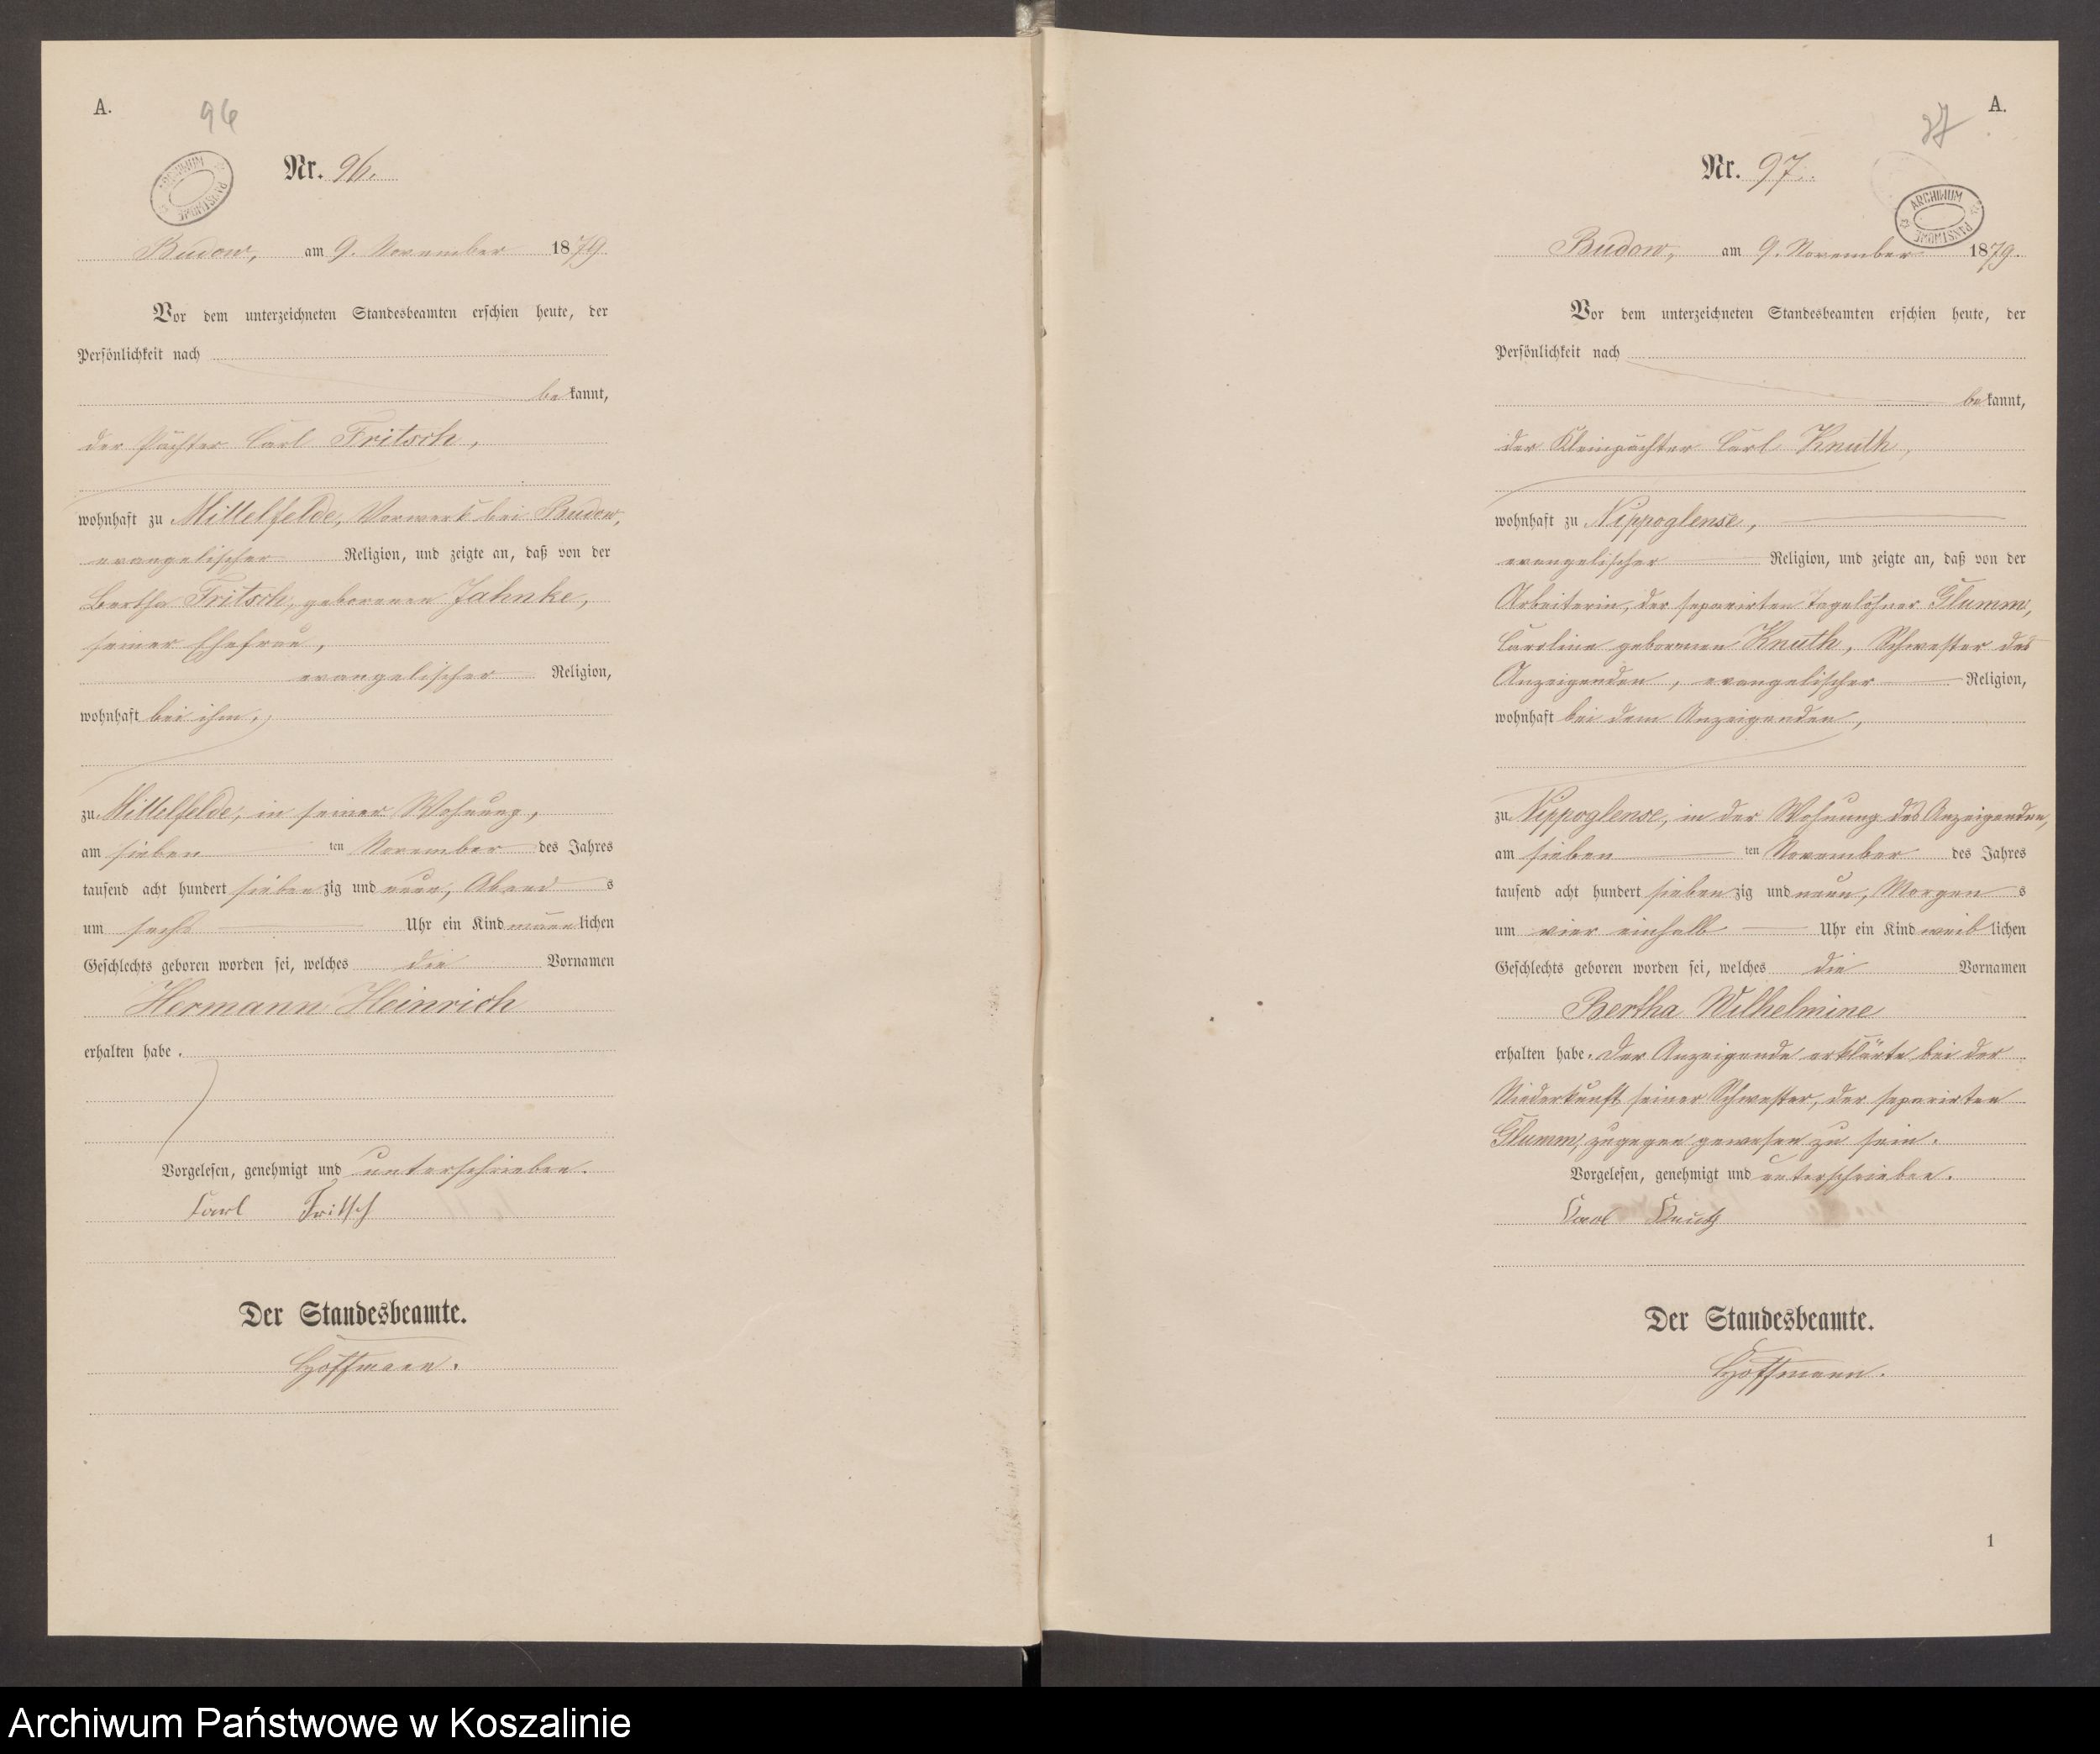 A.
96
Nr. 96.
ARCHIWUM PAŃSTWOWE
Budow, am 9. November 1879.
Vor dem unterzeichneten Standesbeamten erschien heute, der
Persönlichkeit nach
bekannt,
der Pächter Carl Fritsch,
wohnhaft zu Mittelfelde, Vorwerk bei Budow,
evangelischer Religion, und zeigte an, daß von der
Bertha Fritsch, geborenen Jahnke,
seiner Ehefrau,
evangelischer Religion,
wohnhaft bei ihm,
zu Mittelfelde, in seiner Wohnung,
am sieben ten November des Jahres
tausend acht hundert siebenzig und neun, Abends
um sechs Uhr ein Kind männlichen
Geschlechts geboren worden sei, welches die Vornamen
Hermann Heinrich
erhalten habe.
Vorgelesen, genehmigt und unterschrieben.
Carl Fritsch
Der Standesbeamte.
Hoffmann.
A.
97
Nr. 97.
ARCHIWUM PAŃSTWOWE
Budow, am 9. November 1879.
Vor dem unterzeichneten Standesbeamten erschien heute, der
Persönlichkeit nach
bekannt,
der Kleinpächter Carl Knuth,
wohnhaft zu Nippoglense,
evangelischer Religion, und zeigte an, daß von der
Arbeiterin, der separirten Tagelöhner Glumm,
Caroline geborenen Knuth, Schwester des
Anzeigenden, evangelischer Religion,
wohnhaft bei dem Anzeigenden,
zu Nippoglense, in der Wohnung des Anzeigenden,
am sieben ten November des Jahres
tausend acht hundert siebenzig und neun, Morgens
um vier einhalb Uhr ein Kind weiblichen
Geschlechts geboren worden sei, welches die Vornamen
Bertha Wilhelmine
erhalten habe. Der Anzeigende erklärte, bei der
Niederkunft seiner Schwester, der separirten
Glumm, zugegen gewesen zu sein.
Vorgelesen, genehmigt und unterschrieben.
Carl Knuth
Der Standesbeamte.
Hoffmann.
1
Archiwum Państwowe w Koszalinie